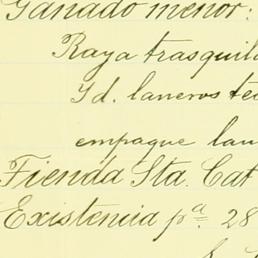 Ganado menor:
Raya trasquila
Yd. laneros te
empaque lan
Tienda Sta. Cat
Existencia pª. 28